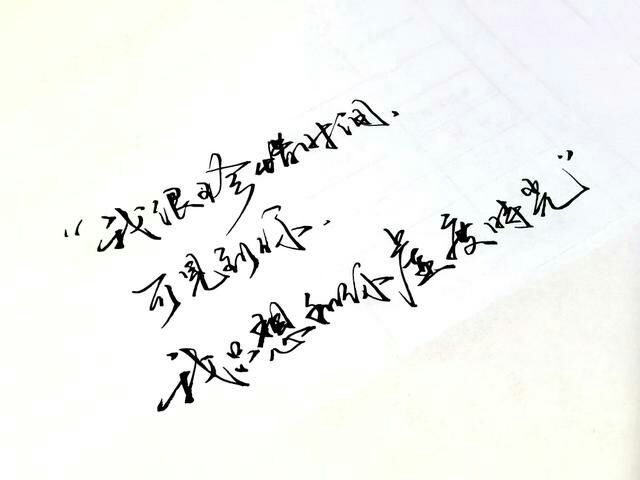 “我很珍惜时间、
可見到你.
我只想和你虚度時光”